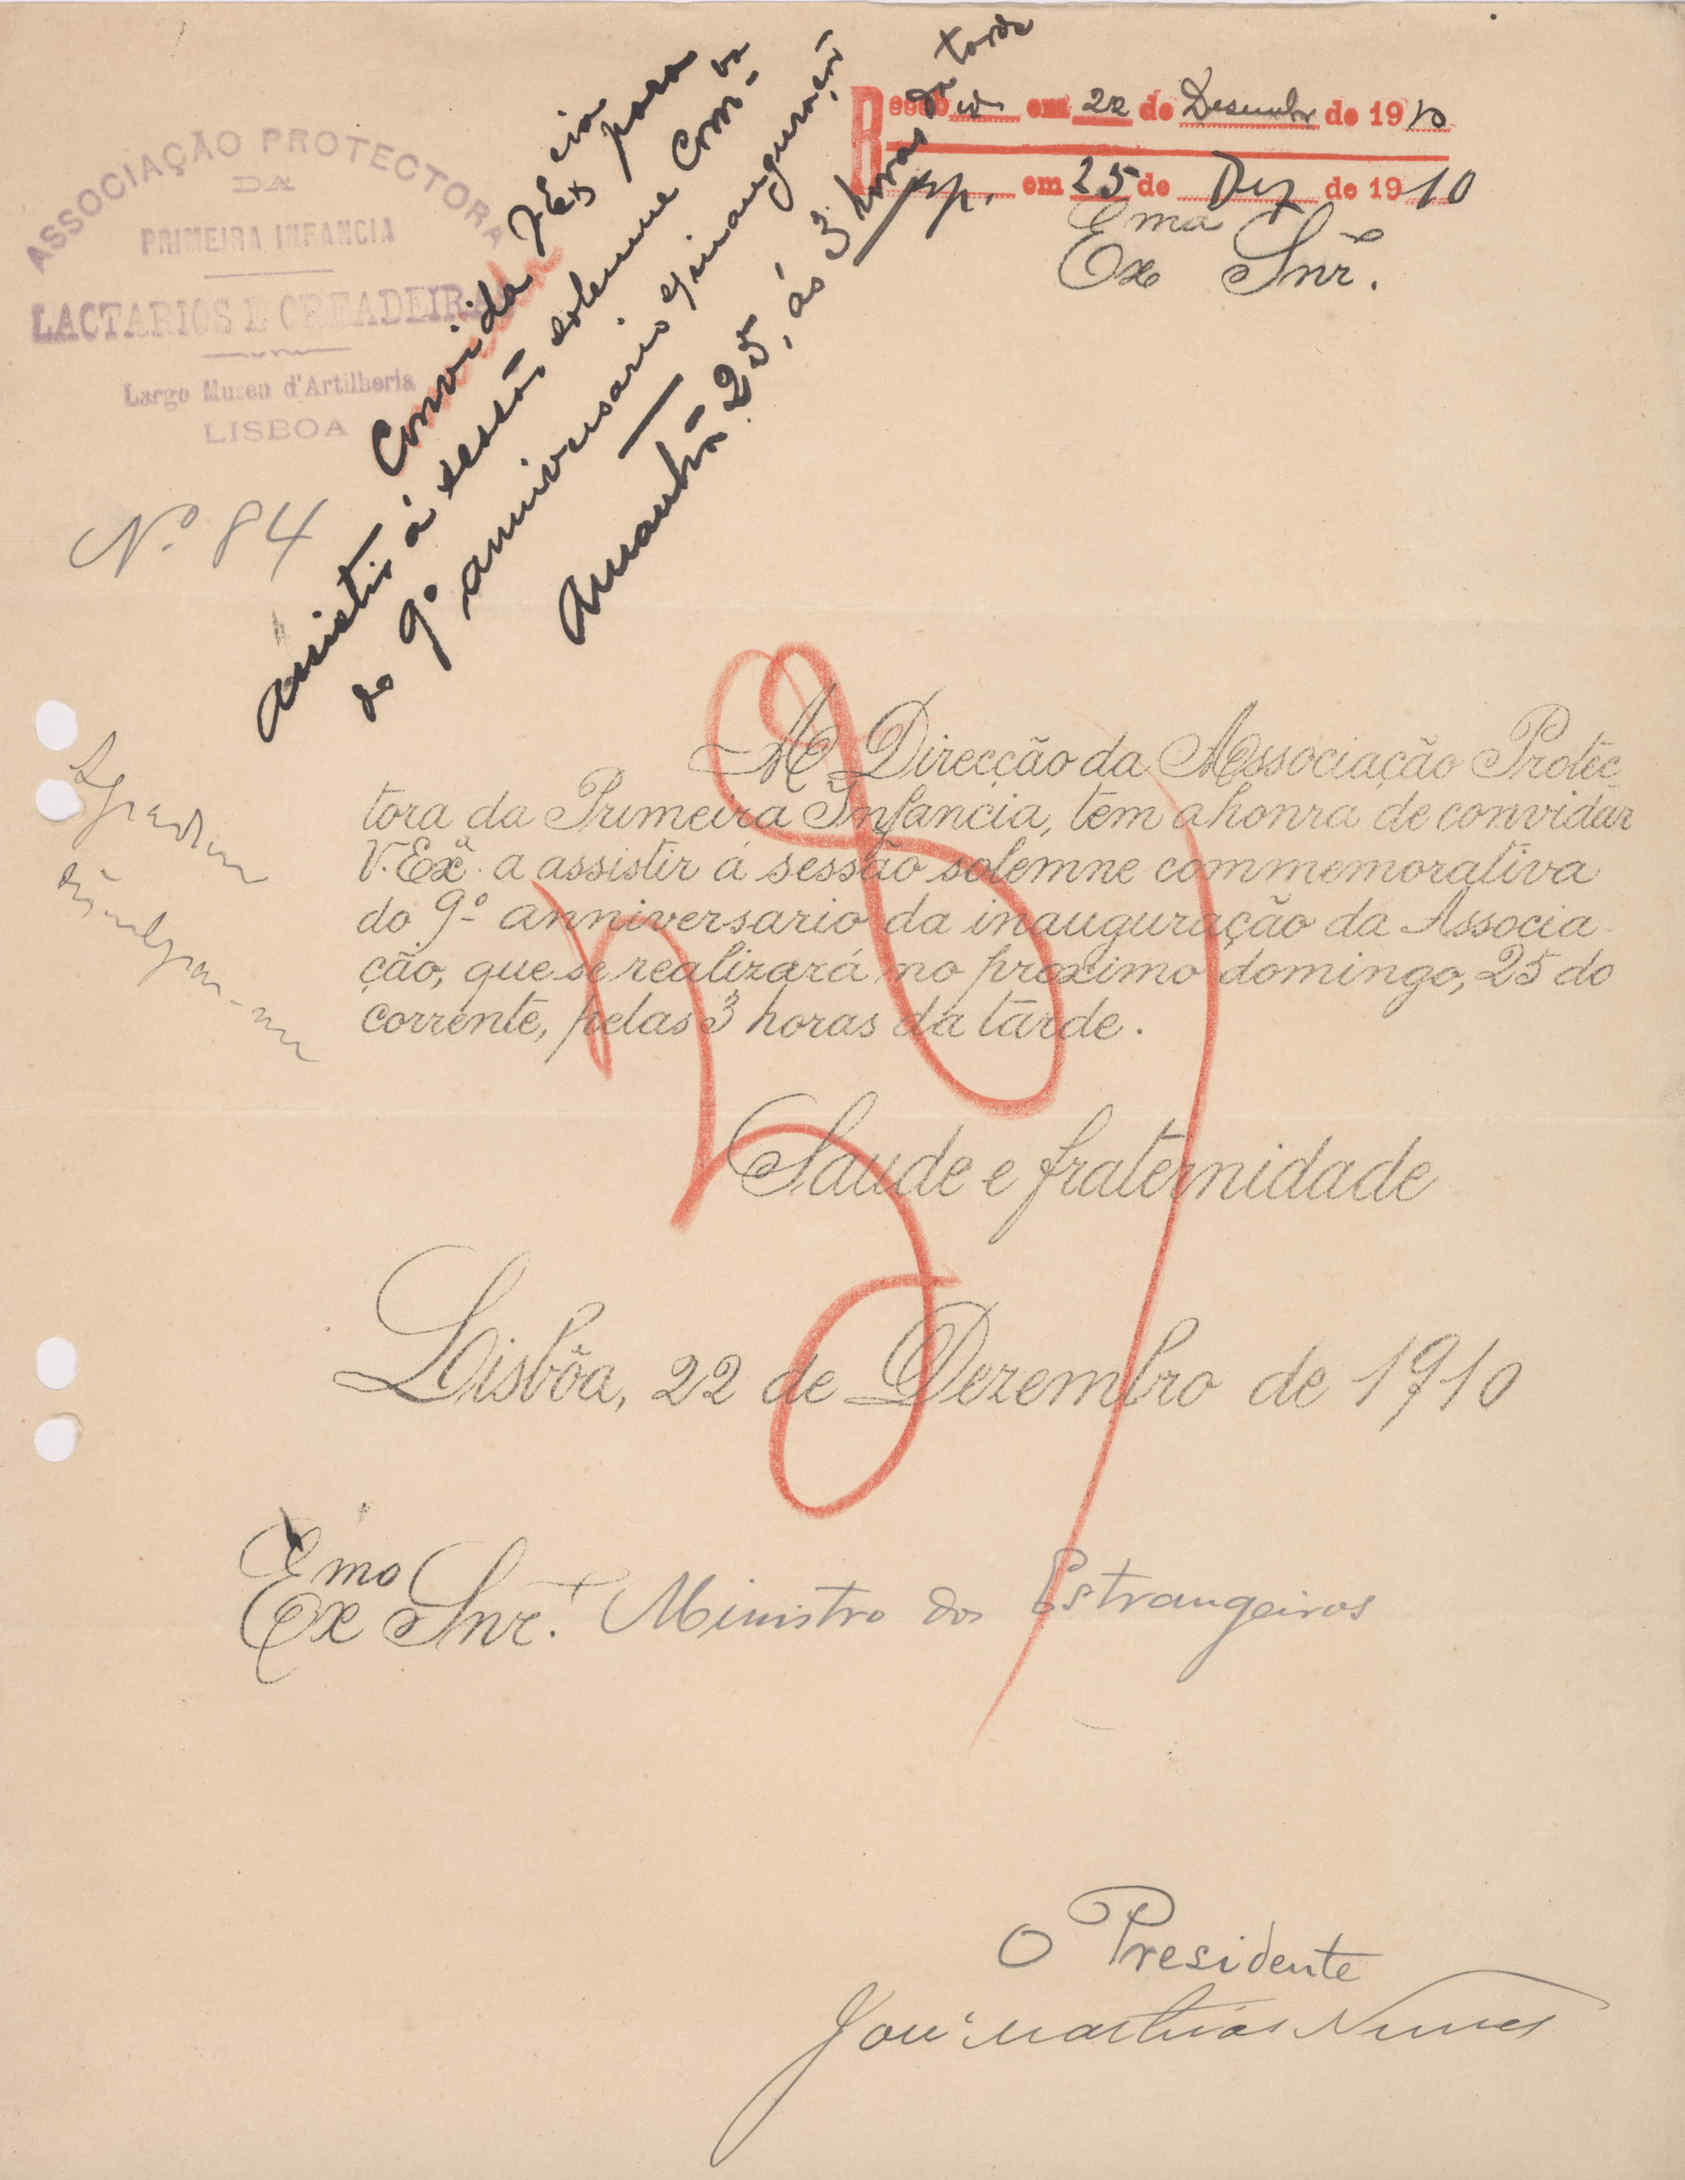 ASSOCIAÇÃO PROTECTORA
DA
PRIMEIRA INFANCIA
LACTARIOS E CREADEIRAS
Largo Museu d'Artilheria
LISBOA
Nº 84
Convida V Ex cia para
assistir á sessão solemne com.va
do 9º anniversario inauguração
Amanhã 25, ás 3 horas da tarde
Receb em 22 de Desembro de 1910
Resp. em 25 de Dez de 1910
Exma Snr.
Agradecer
A Direcção da Associação Protec
tora da Primeira Infancia, tem a honra de convidar
V. Exª. a assistir á sessão solemne commemorativa
do 9º anniversario da inauguração da Associa
ção, que se realizará no proximo domingo, 25 do
corrente, pelas 3 horas da tarde.
Saude e fraternidade
Lisbôa, 22 de Dezembro de 1910
Exmo Snr. Ministro dos Estrangeiros
O Presidente
José Mathias Nunes